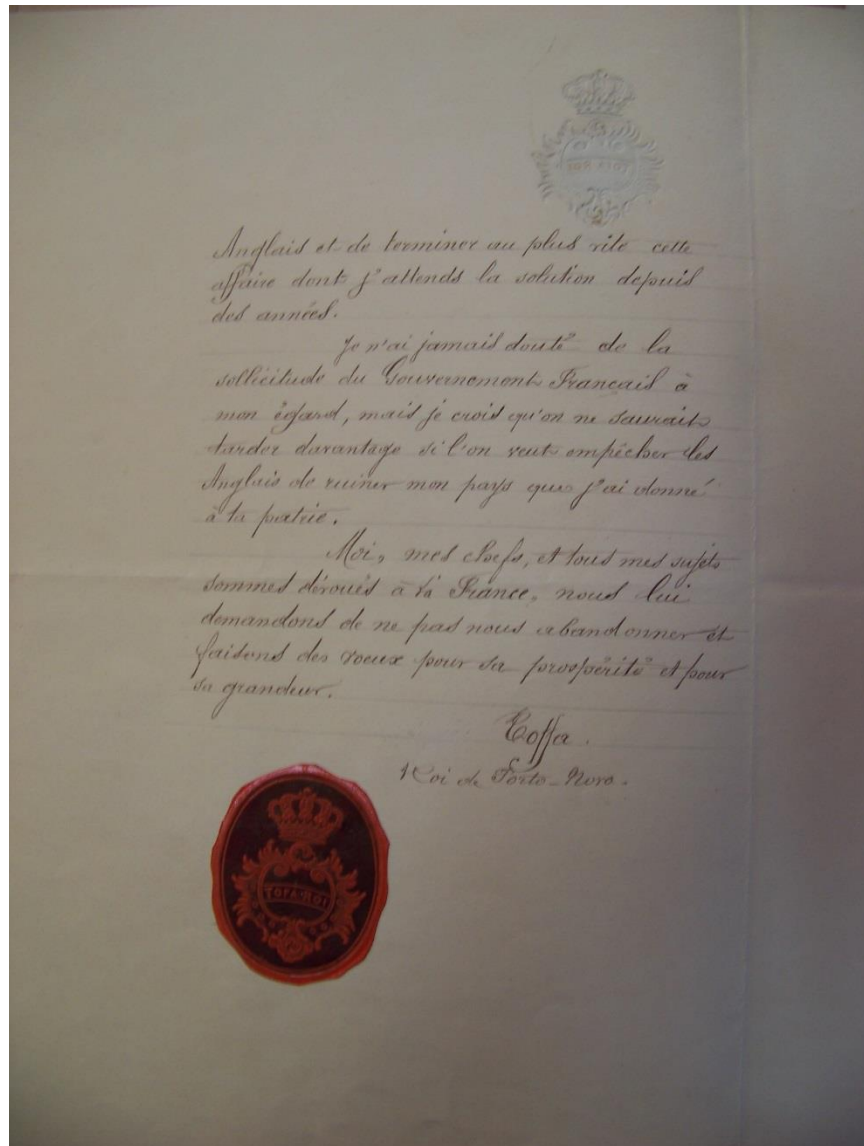 TOFA-ROI
Anglais et de terminer au plus vite cette
affaire dont j'attends la solution depuis
des années.
Je n'ai jamais douté de la
sollicitude du Gouvernement Français à
mon égard, mais je crois qu'on ne saurait
tarder davantage si l'on veut empêcher les
Anglais de ruiner mon pays que j'ai donné
à la patrie.
Moi, mes chefs, et tous mes sujets
sommes dévoués à la France, nous lui
demandons de ne pas nous abandonner et
faisons des voeux pour sa prospérité et pour
sa grandeur.
Toffa.
Roi de Porto-Novo.
TOFA-ROI